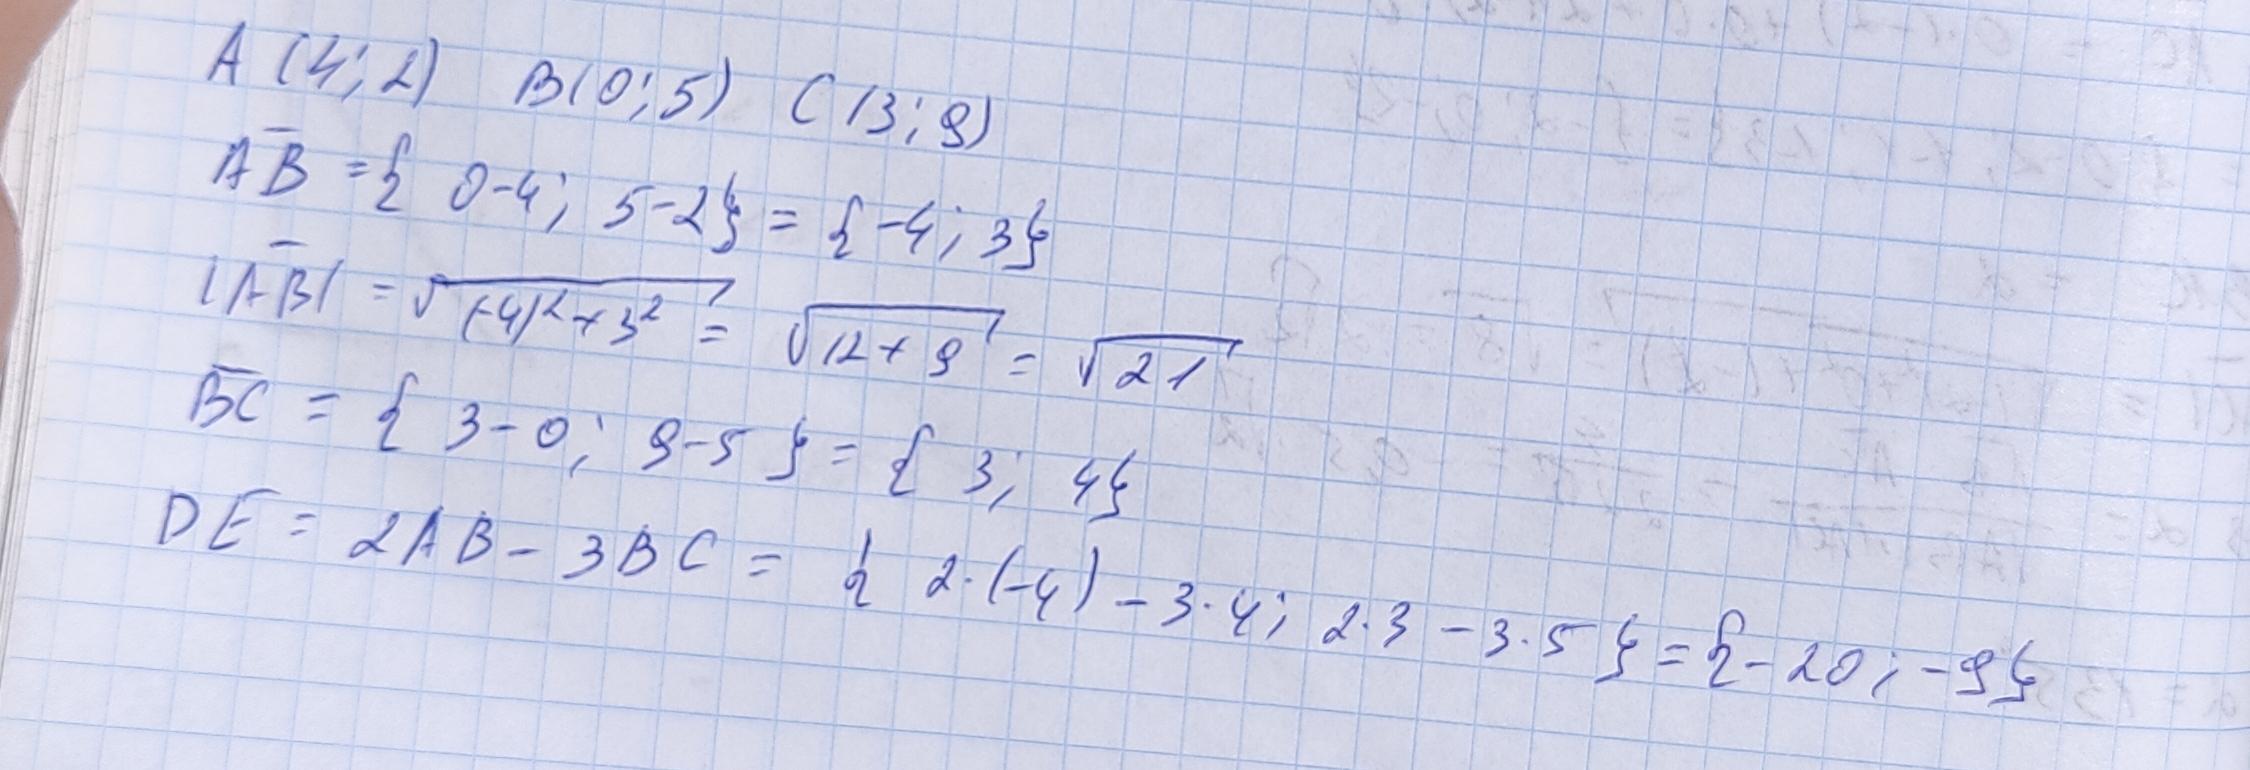 A (4; 2) B(0; 5) C(3; 9)
A̅B̅ = { 0-4; 5-2} = {-4; 3}
|A̅B̅| = √((-4)²+3²) = √(12+9) = √21
B̅C̅ = { 3-0; 9-5 } = { 3; 4}
DE̅ = 2AB - 3BC = { 2·(-4) - 3·4; 2·3 - 3·5 } = {-20; -9}